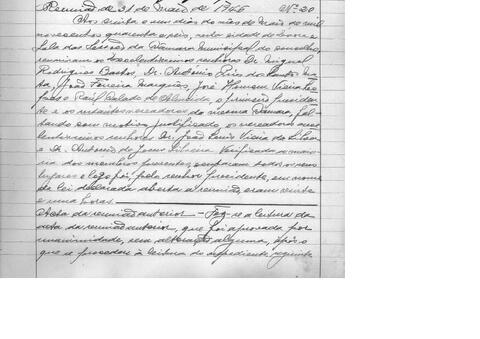 Reunião de 31 de Maio de 1946 Nº 20
Aos trinta e um dias do mês de Maio de mil
novecentos quarenta e seis, nesta cidade de e
Sala das Sessões da Câmara Municipal do concelho,
reuniram os Excelentíssimos senhores Dr. Miguel
Rodrigues Bastos, Dr. António dos Santos
João Ferreira Marques, José Vieira
e Raúl de Almeida, o primeiro presiden
te e os restantes vereadores da mesma Câmara, fal
tando com motivo justificado os vereadores exce
lentíssimos senhores Dr. João Luís Vieira da Silva
e Dr. António de Jesus Silveira. Verificada a maio
ria dos membros presentes, ocuparam todos os seus
lugares e logo foi, pelo senhor presidente, em nome
da lei declarada aberta a reunião, eram vinte
e uma horas.
Acta da reunião anterior - Fez-se a leitura da
acta da reunião anterior, que foi aprovada por
unanimidade, sem alteração alguma, após o
que se procedeu à leitura do expediente seguinte